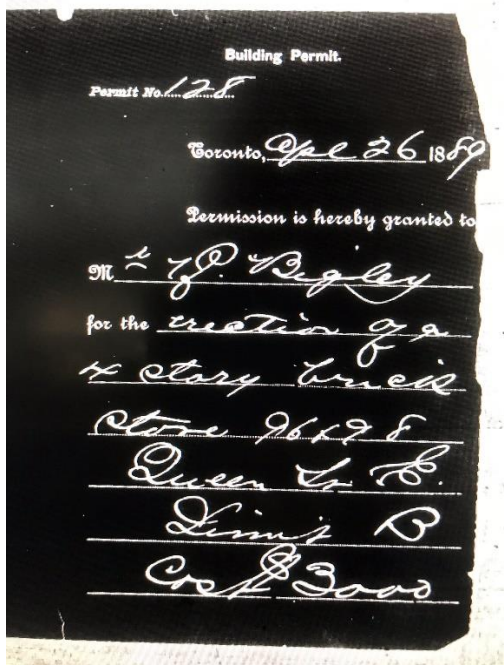 Building Permit.
Permit No. 128
Toronto, Apl 26 1889
Permission is hereby granted to
Mr Bigley
for the erection of a
4 story brick
store 96 & 98
Queen St E.
Limit B
Cost $3000